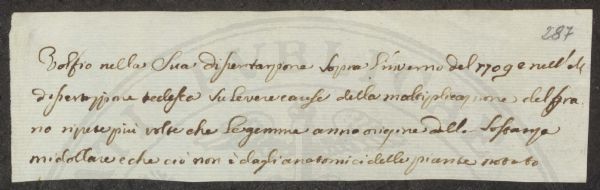 287
Volfio nella Sua dissertazione sopra l'inverno del 1709 e nell'al.
dissertazione tedesca su le vere cause della moltiplicazione del gra-
no ripete più volte che le gemme anno origine dalla sostanza
midollare e che ciò non è dagli anatomici delle piante notato